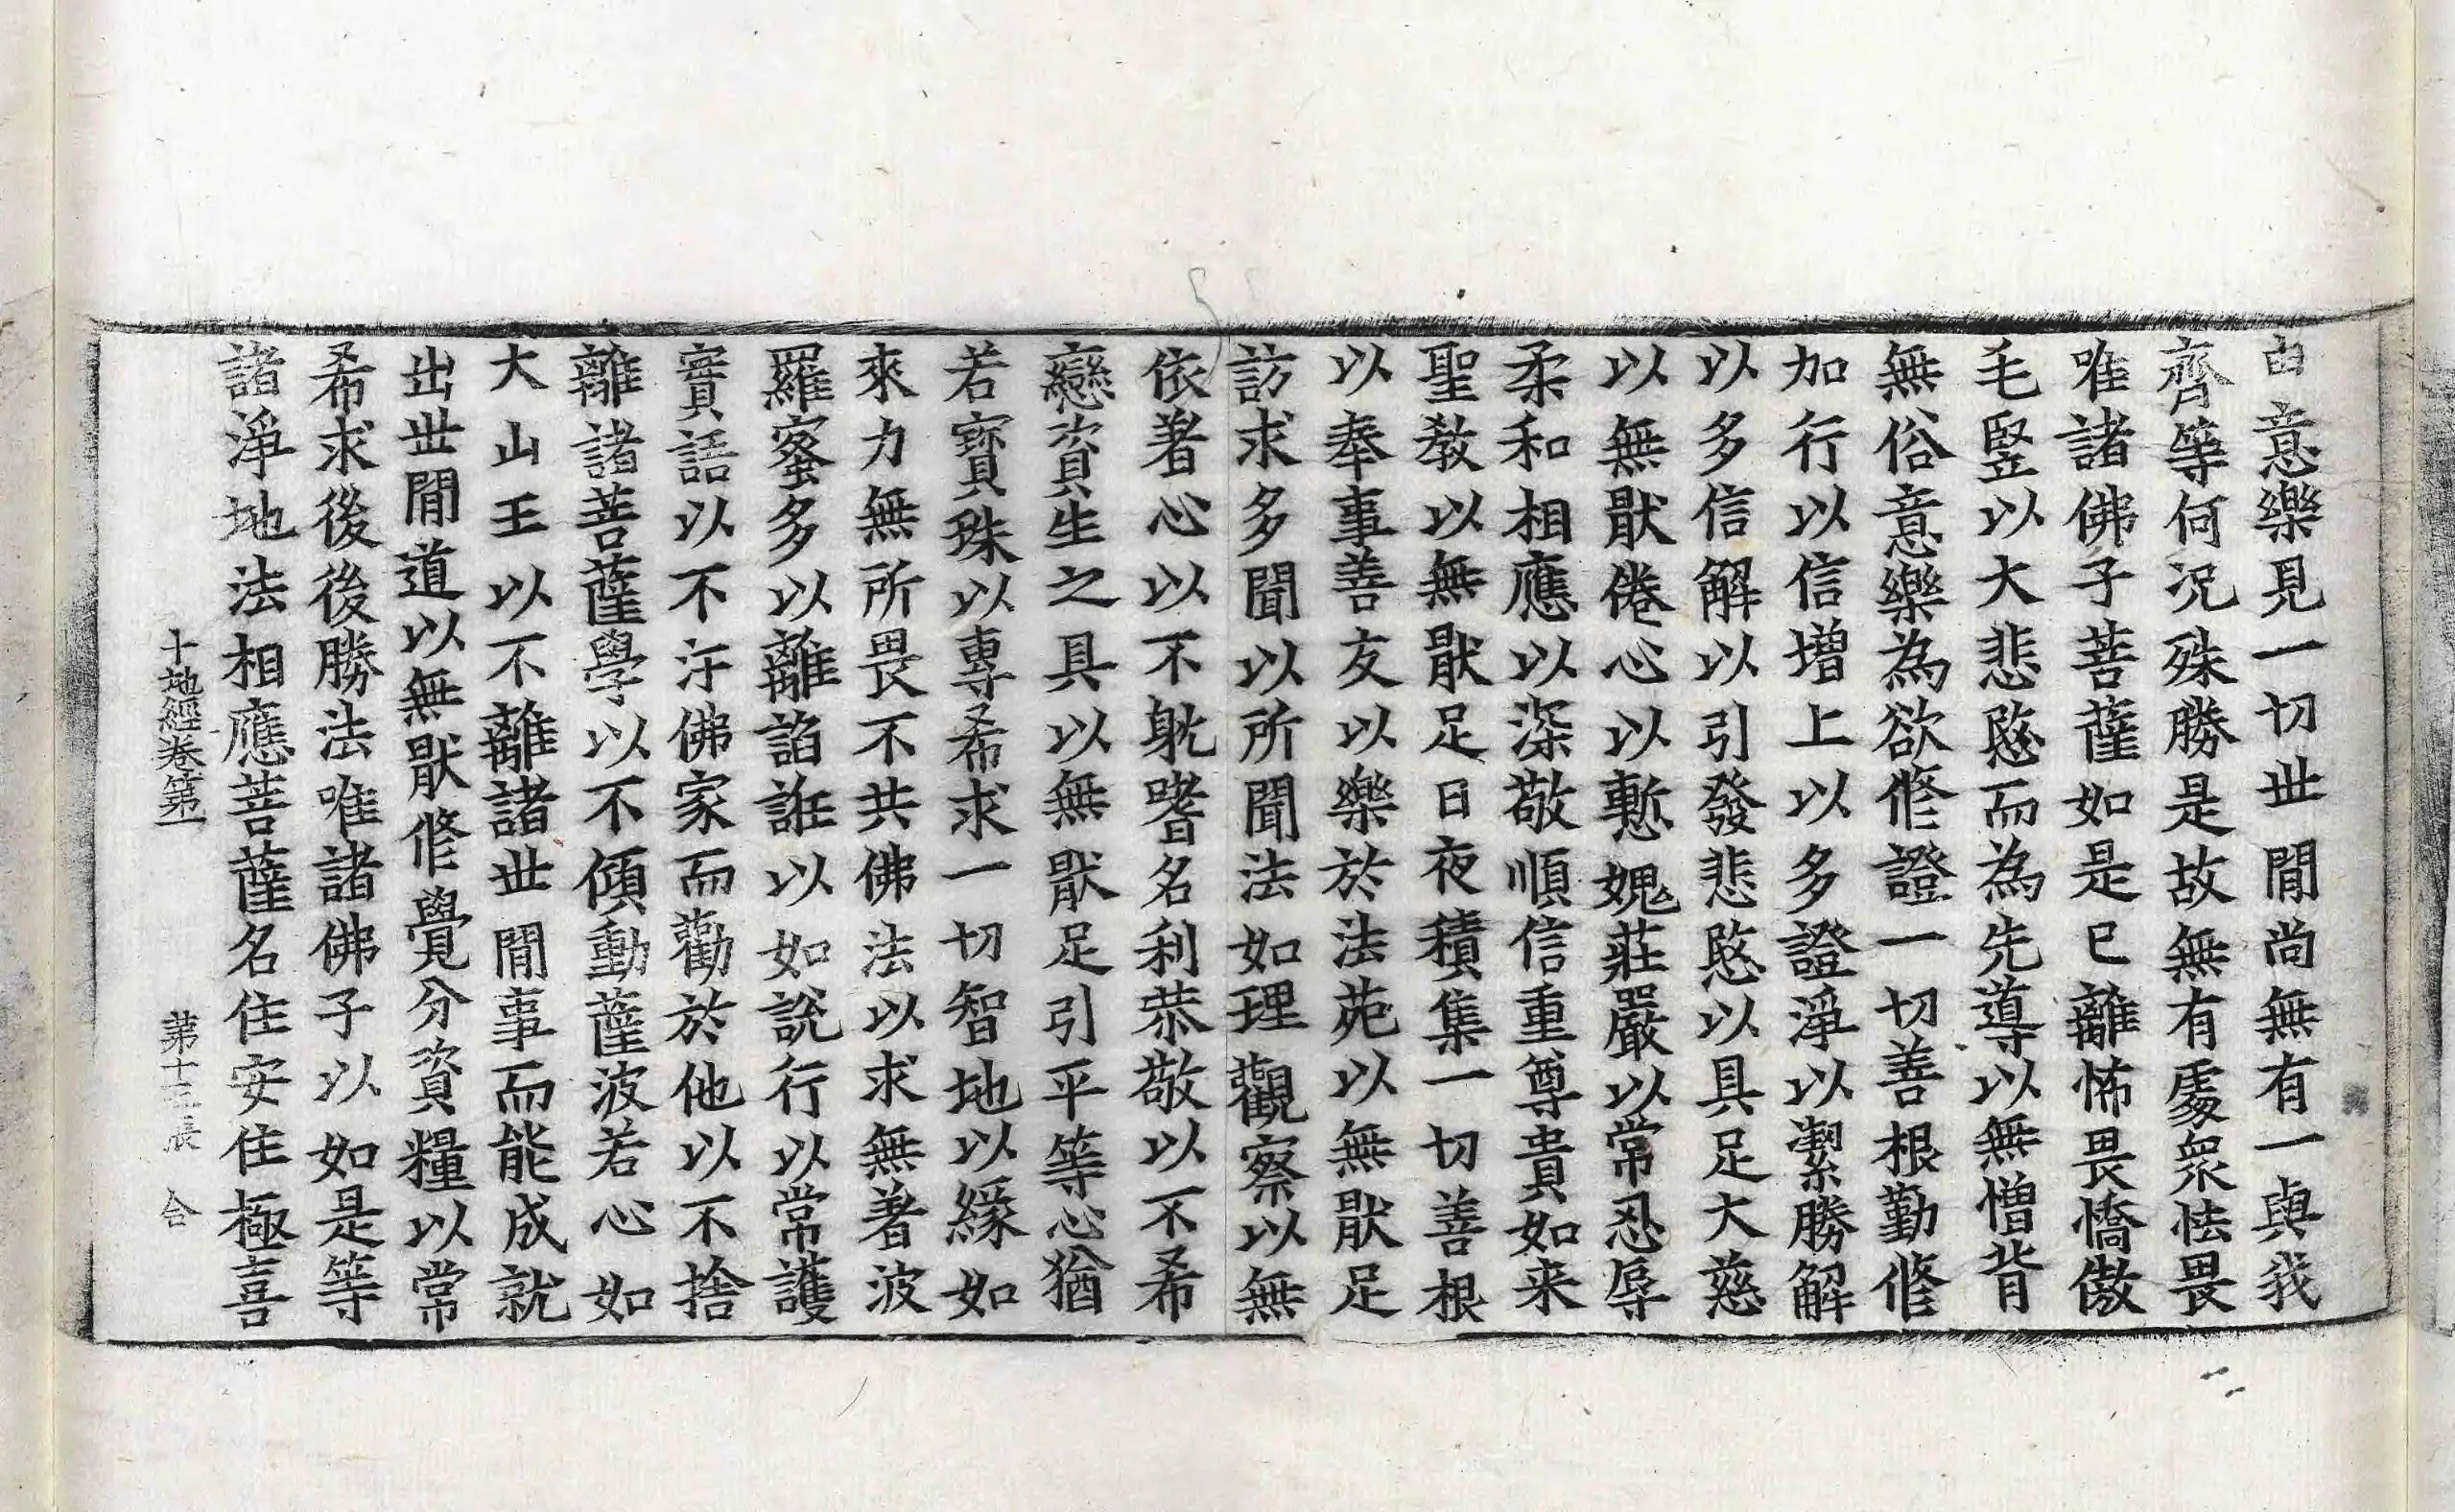 由意樂見一切世間尚無有一與我
齊等何況殊勝是故無有處衆怯畏
唯諸佛子菩薩如是已離怖畏憍傲
毛竪以大悲愍而為先導以無憎背
無俗意樂為欲修證一切善根勤修
加行以信增上以多證淨以潔勝解
以多信解以引發悲愍以具足大慈
以無猒倦心以慙媿莊嚴以常忍辱
柔和相應以深敬順信重尊貴如来
聖教以無猒足日夜積集一切善根
以奉事善友以樂於法苑以無猒足
訪求多聞以所聞法如理觀察以無
依著心以不躭嗜名利恭敬以不希
戀資生之具以無猒足引平等心猶
若寶珠以專希求一切智地以緣如
來力無所畏不共佛法以求無著波
羅蜜多以離諂誑以如說行以常護
實語以不汙佛家而勸於他以不捨
離諸菩薩學以不傾動薩波若心如
大山王以不離諸世間事而能成就
出世間道以無猒修覺分資糧以常
希求後後勝法唯諸佛子以如是等
諸淨地法相應菩薩名住安住極喜
十地經卷第一 第十三張 合